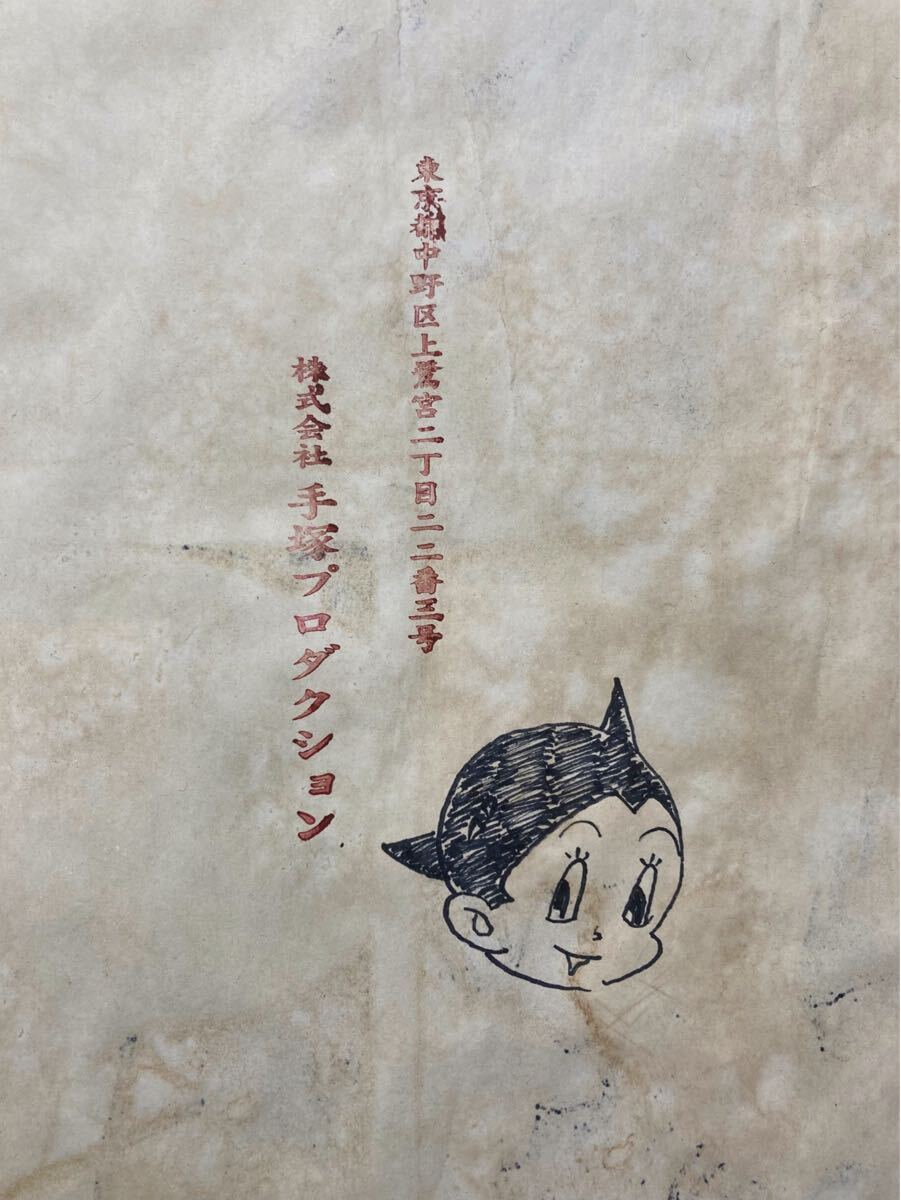 東京都中野区上鷺宮二丁目二二番三号
株式会社 手塚プロダクション